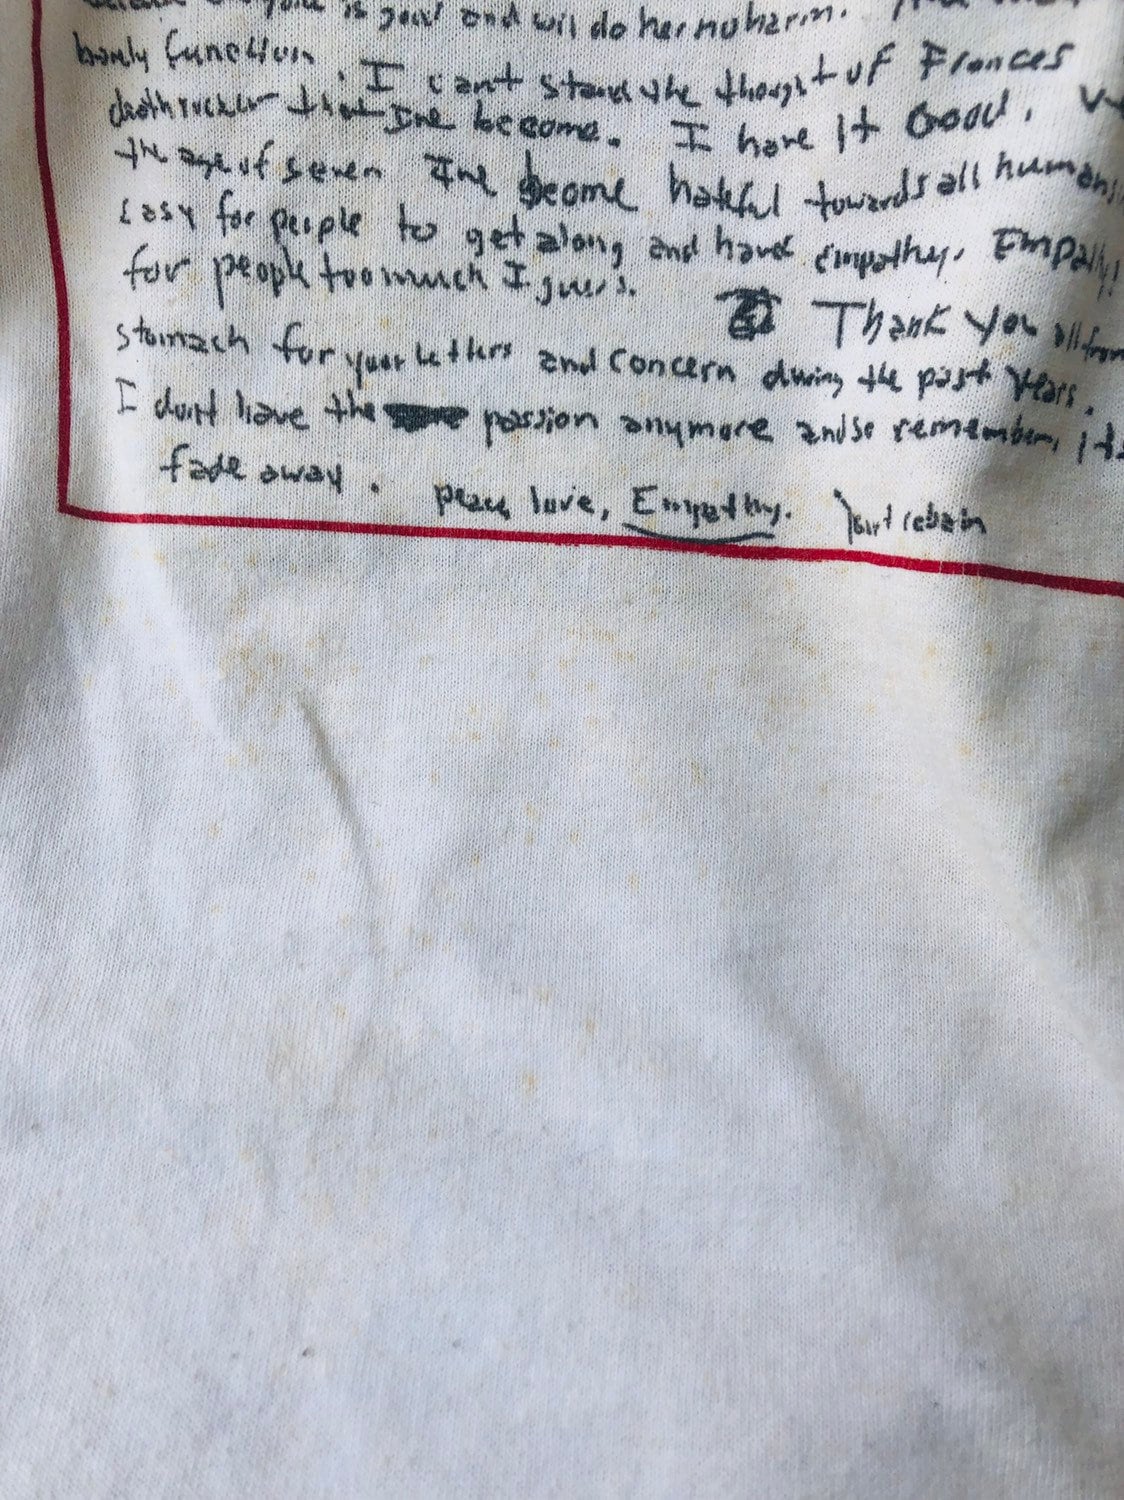 is good and will do her no harm.
barely function. I can't stand the thought of Frances
deathrocker that Ive become. I have it Good.
the age of seven Ive become hateful towards all humans
easy for people to get along and have empathy. Empathy!
for people too much I guess. Thank you all from
stomach for your letters and concern during the past years.
I don't have the passion anymore and so remember, its
fade away. peace love, Empathy. kurt cobain